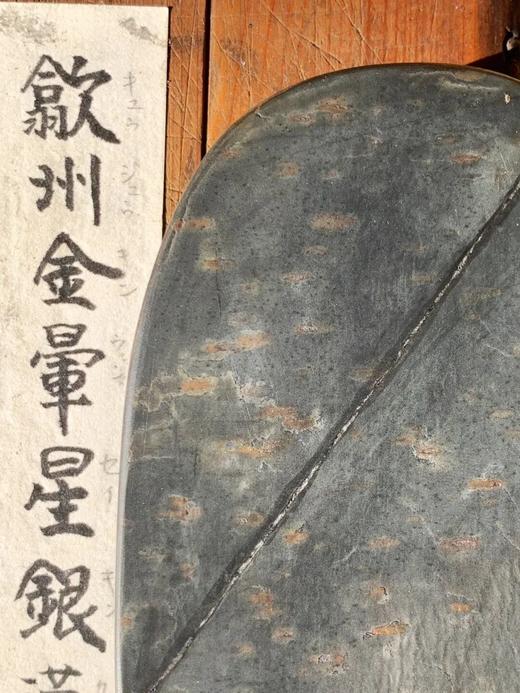 歙州金暈星銀
キュウ ジュウ キン ウン セイ ギン